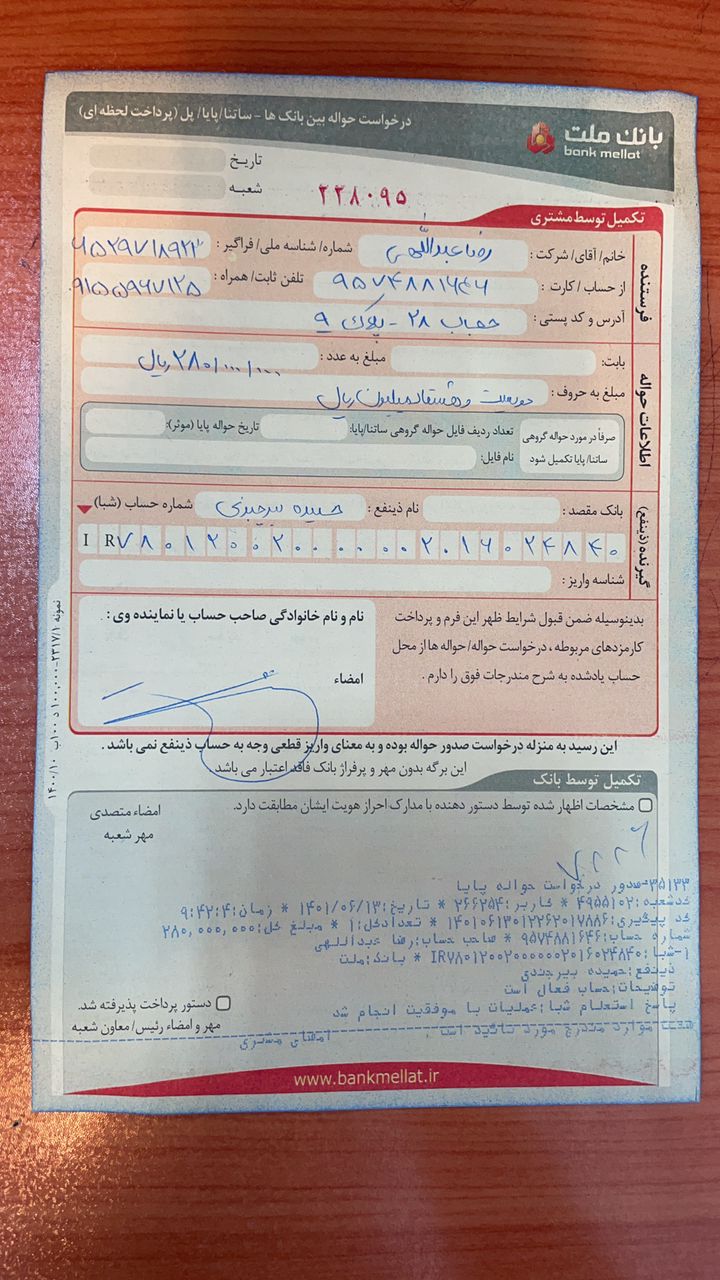 درخواست حواله بین بانک ها - ساتنا/پایا/ پل (پرداخت لحظه ای)
بانک ملت
bank mellat
تاریخ
شعبه
۲۲۸۰۹۵
تکمیل توسط مشتری
فرستنده
خانم/ آقای/ شرکت : رضا عبداللهی شماره/ شناسه ملی/ فراگیر :
از حساب / کارت : ۹۵۷۴۸۸۱۶۴۶ تلفن ثابت/ همراه :
آدرس و کد پستی : ۲۸ - پلاک ۹
اطلاعات حواله
بابت: مبلغ به عدد : ۲۸۰/۰۰۰/۰۰۰ ریال
مبلغ به حروف : دویست و هشتاد میلیون ریال
صرفاً در مورد حواله گروهی ساتنا/ پایا تکمیل شود
تعداد ردیف فایل حواله گروهی ساتنا/پایا: تاریخ حواله پایا (موثر):
نام فایل:
گیرنده (ذینفع)
بانک مقصد : نام ذینفع : حمیده بیرجندی شماره حساب (شبا)
IR۷۸۰۱۲۰۰۲۰۰۰۰۰۰۰۲۰۱۶۰۲۴۸۴۰
شناسه واریز :
بدینوسیله ضمن قبول شرایط ظهر این فرم و پرداخت
کارمزدهای مربوطه ، درخواست حواله/ حواله ها از محل
حساب یادشده به شرح مندرجات فوق را دارم .
نام و نام خانوادگی صاحب حساب یا نماینده وی :
امضاء
این رسید به منزله درخواست صدور حواله بوده و به معنای واریز قطعی وجه به حساب ذینفع نمی باشد .
این برگه بدون مهر و پرفراژ بانک فاقد اعتبار می باشد .
تکمیل توسط بانک
مشخصات اظهار شده توسط دستور دهنده با مدارک احراز هویت ایشان مطابقت دارد.
امضاء متصدی
مهر شعبه
۳۵۱۳۳-صدور درخواست حواله پایا
کدشعبه:۴۹۵۵۱۰۲ * کاربر:۲۶۶۲۵۴ * تاریخ:۱۴۰۱/۰۶/۱۳ * زمان:۹:۴۲:۴
کد پیگیری:۱۴۰۱۰۶۱۳۰۱۲۲۶۲۰۱۷۸۸۶ * تعدادکل:۱ * مبلغ کل:۲۸۰,۰۰۰,۰۰۰
شماره حساب:۹۵۷۴۸۸۱۶۴۶ * صاحب حساب:رضا عبداللهی
۱-شبا:IR۷۸۰۱۲۰۰۲۰۰۰۰۰۰۰۲۰۱۶۰۲۴۸۴۰ * بانک:ملت
ذینفع:حمیده بیرجندی
توضیحات:حساب فعال است
پاسخ استعلام شبا:عملیات با موفقیت انجام شد
صحت موارد مندرج مورد تائید است امضای مشتری
دستور پرداخت پذیرفته شد.
مهر و امضاء رئیس/ معاون شعبه
www.bankmellat.ir